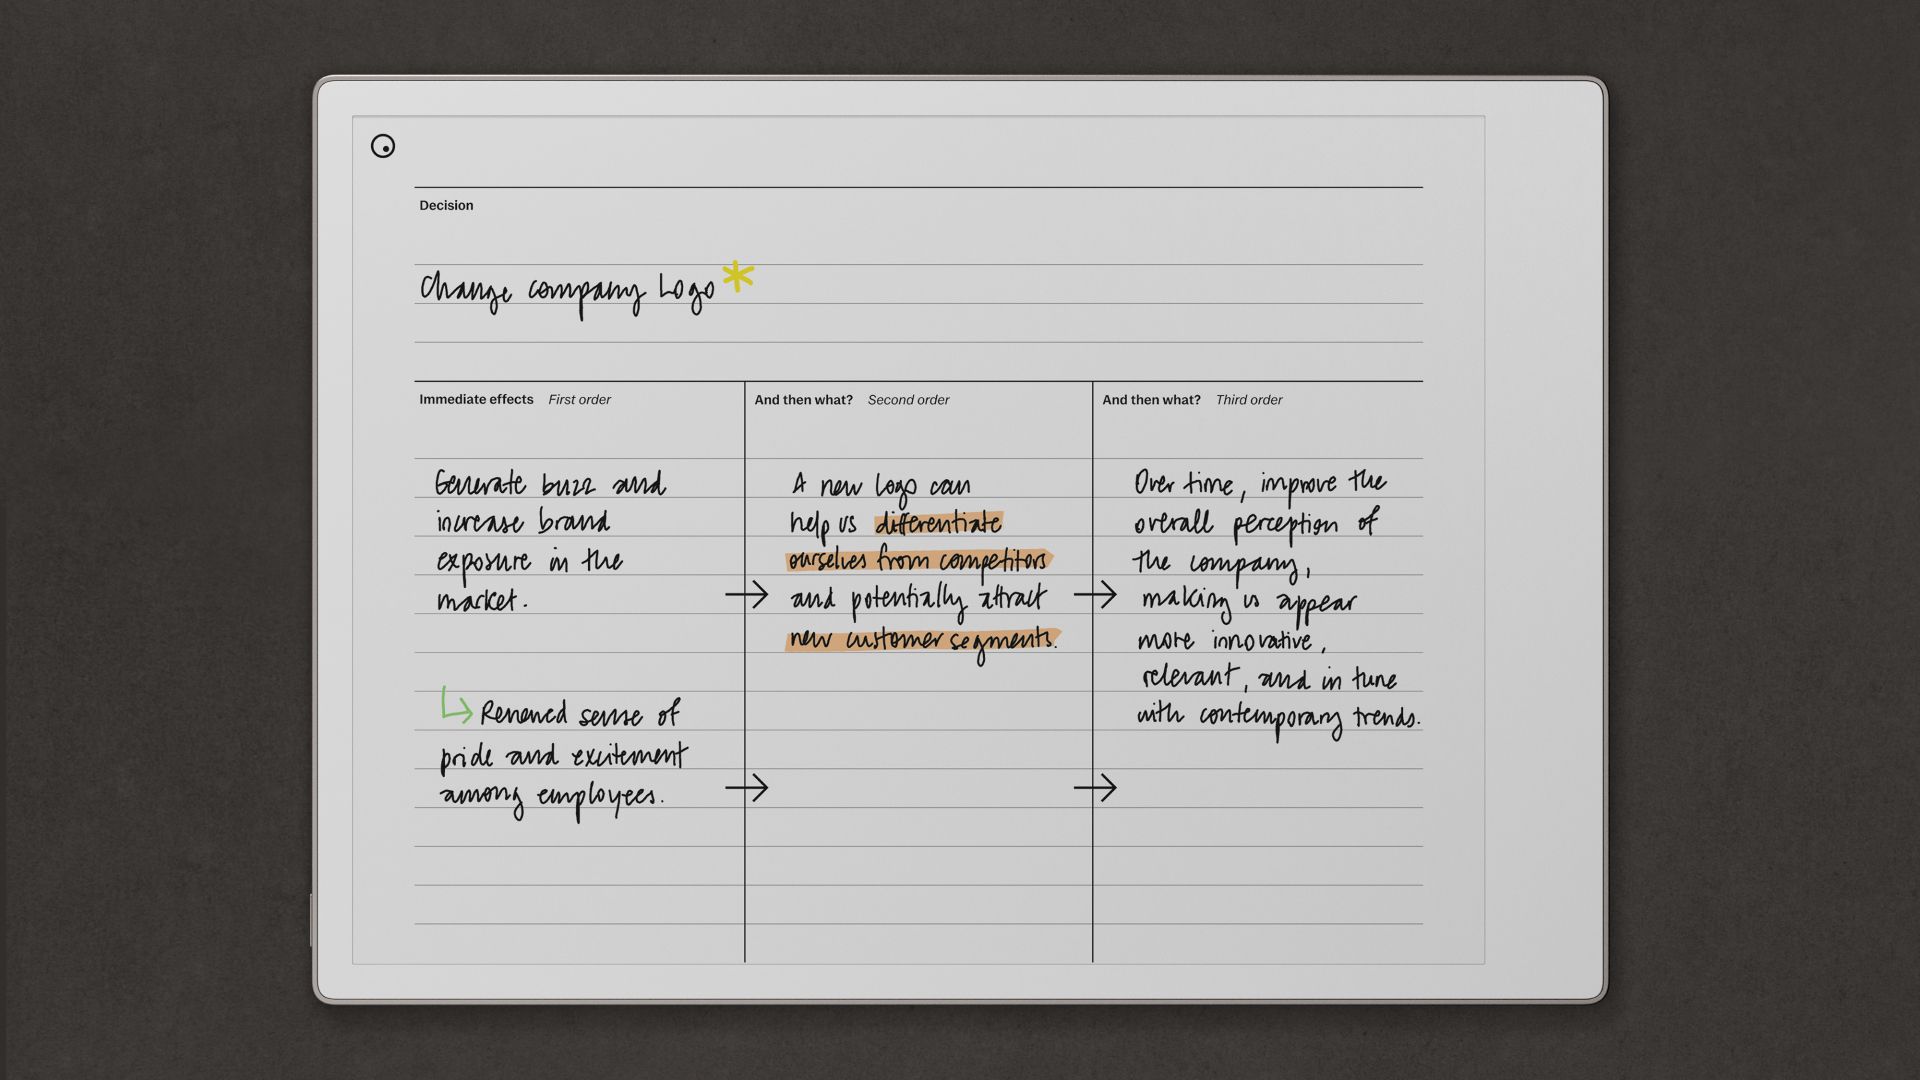 Decision
Change company Logo *
Immediate effects First order
And then what? Second order
And then what? Third order
Generate buzz and
increase brand
exposure in the
market.
↳ Renewed sense of
pride and excitement
among employees.
→
→
A new logo can
help us differentiate
ourselves from competitors
and potentially attract
new customer segments.
→
→
Over time, improve the
overall perception of
the company,
making us appear
more innovative,
relevant, and in tune
with contemporary trends.